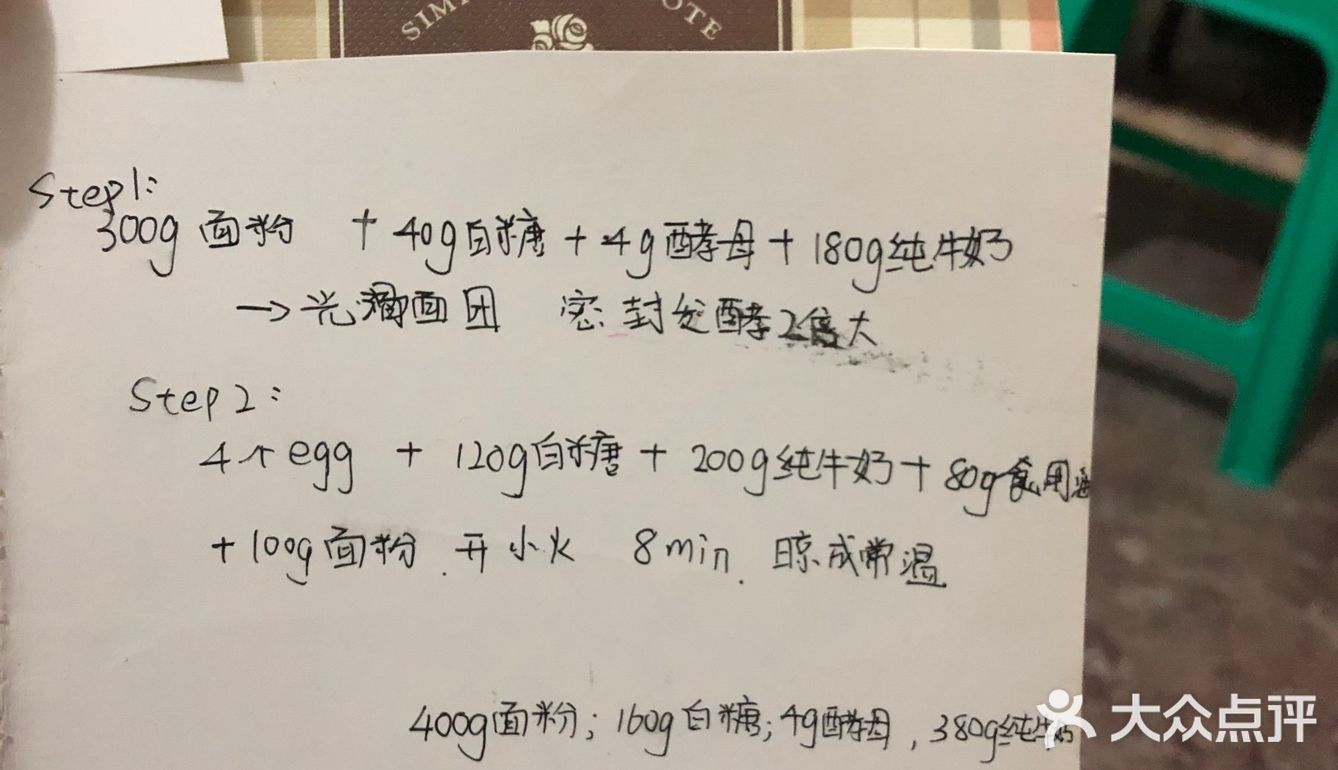 Step1:
300g 面粉 + 40g白糖 + 4g酵母 + 180g纯牛奶
→ 光滑面团 密封发酵2倍大
Step 2:
4个egg + 120g白糖 + 200g纯牛奶 + 80g食用油
+ 100g面粉. 开小火 8min. 晾成常温
400g面粉; 160g白糖; 4g酵母, 380g纯牛奶
大众点评